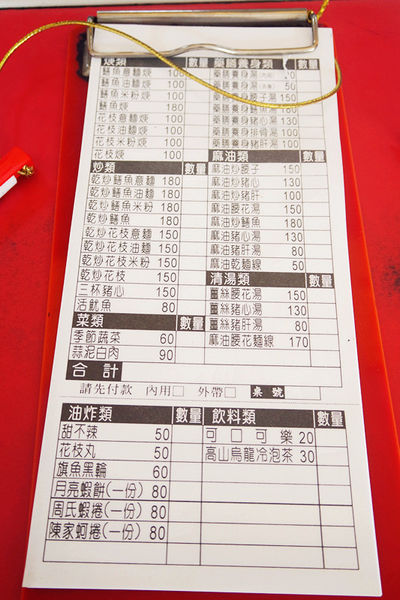 燴類 數量 藥膳養身類 數量
鱔魚意麵燴 100
鱔魚油麵燴 100
鱔魚米粉燴 100
鱔魚燴 180
花枝意麵燴 100
花枝油麵燴 100
花枝米粉燴 100
花枝燴 100
藥膳養身湯
藥膳養身湯 50
藥膳養身腰子湯 150
藥膳養身 150
藥膳養身 100
藥膳養身排骨湯 100
藥膳養身豬肝湯 100
炒類 數量
乾炒鱔魚意麵 180
乾炒鱔魚油麵 180
乾炒鱔魚米粉 180
乾炒鱔魚 180
乾炒花枝意麵 150
乾炒花枝油麵 150
乾炒花枝米粉 150
乾炒花枝 150
三杯豬心 150
活魷魚 80
麻油類 數量
麻油炒腰子 150
麻油炒豬心 130
麻油炒豬肝 100
麻油腰花湯 150
麻油炒鱔魚 180
麻油豬心湯 130
麻油豬肝湯 80
麻油乾麵線 50
清湯類 數量
薑絲腰花湯 150
薑絲豬心湯 130
薑絲豬肝湯 80
麻油腰花麵線 170
菜類 數量
季節蔬菜 60
蒜泥白肉 90
合計
請先付款 內用□ 外帶□ 桌號
油炸類 數量 飲料類 數量
甜不辣 50
花枝丸 50
旗魚黑輪 60
月亮蝦餅(一份) 80
周氏蝦捲(一份) 80
陳家蚵捲(一份) 80
可口可樂 20
高山烏龍冷泡茶 30